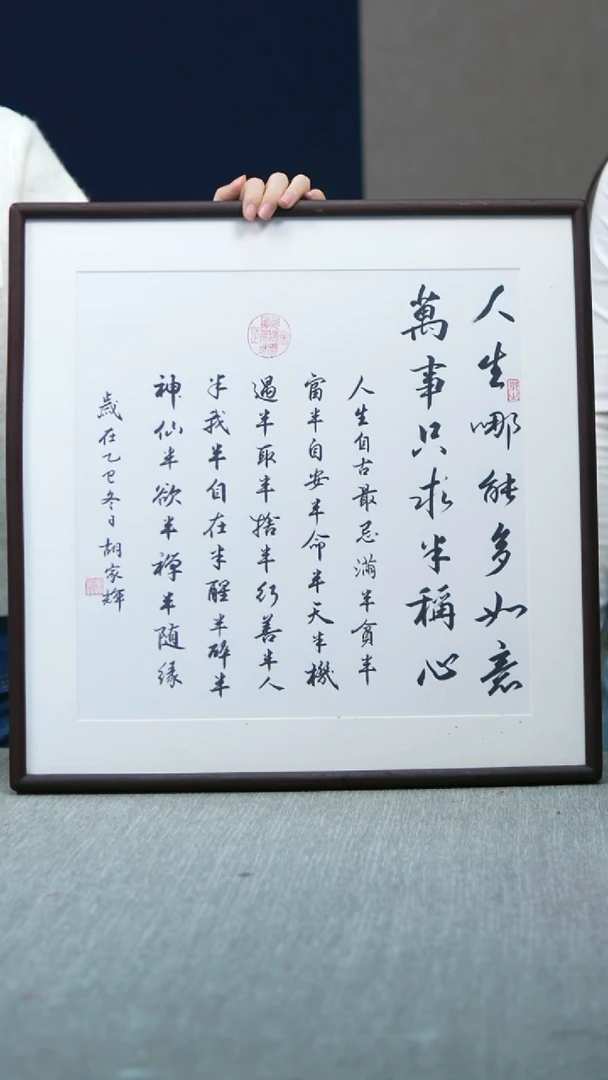 人生哪能多如意
萬事只求半稱心
人生自古最忌滿半貧半
富半自安半命半天半機
遇半取半捨半行善半人
半我半自在半醒半醉半
神仙半欲半禪半随緣
歲在乙巳冬日胡家輝